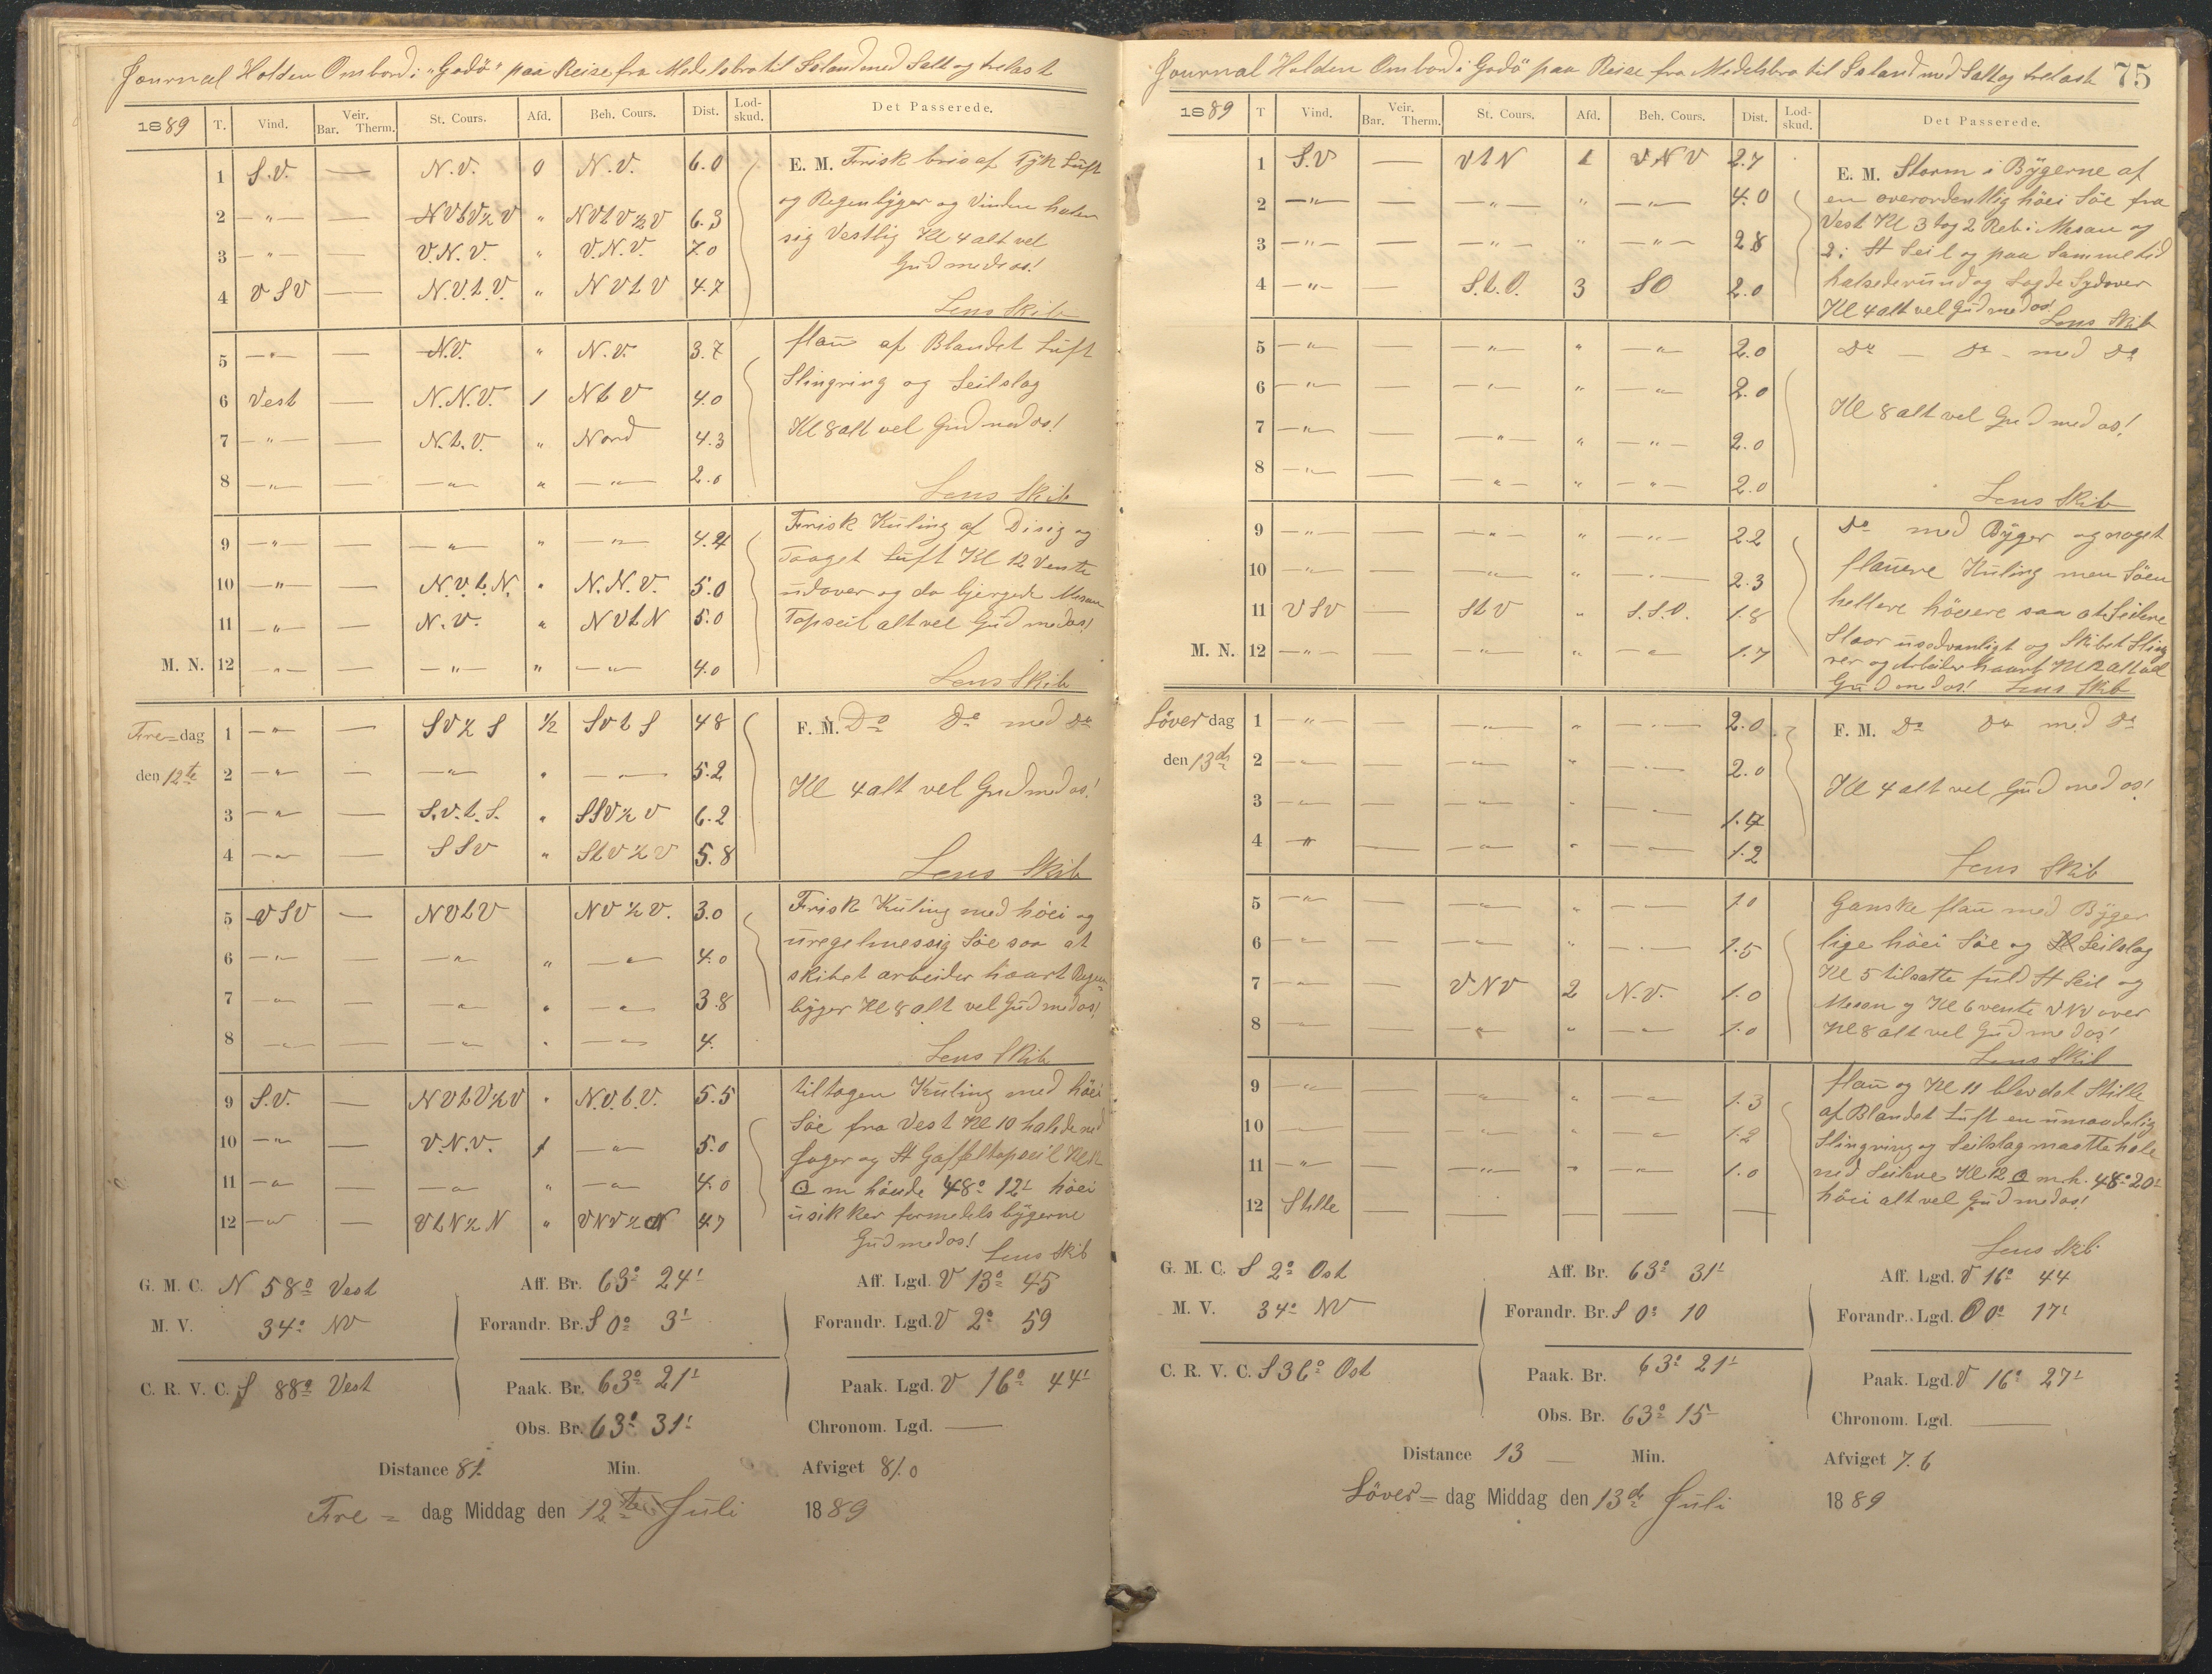 Journal Holden Ombord i "Godö" paa Reise fra Medelsbro til Island med Salt og trelast
1889 T. Vind. Veir. Bar. Therm. St. Cours. Afd. Beh. Cours. Dist. Lod-skud. Det Passerede.
1 S.V. — N.V. 0 N.V. 6.0 E. M. Frisk bris af Tyk Luft
2 —"— — NVtV½V " NVtV½V 6.3 og Regenbyger og Vinden haler
3 —"— — V.N.V. " V.N.V. 7.0 sig Vestlig Kl 4 alt vel
Gud med os!
4 VSV — N.V.t.V. " NVtV 4.7
Lens Skib
5 —"— — N.V. " N.V. 3.7 flau af Blandet Luft
6 Vest — N.N.V. 1 NtV 4.0 Slingring og Seilslag
7 —"— — N.t.V. " Nord 4.3 Kl 8 alt vel Gud med os!
8 —"— — —"— " —"— 2.0 Lens Skib
9 —"— — —"— " —"— 4.4 Frisk Kuling af Disig og
Taaget Luft Kl 12 Vente
10 —"— — N.V.t.N. " N.N.V. 5.0 udover og da bjergede Mesan
11 —"— — N.V. " NVtN 5.0 Topseil alt vel Gud med os!
M. N. 12 —"— — —"— " —"— 4.0 Lens Skib
Fre=dag 1 —"— — SV½S ½ SVtS 4.8 F. M. Do Do med Do
den 12te 2 —"— — —"— " —"— 5.2 Kl 4 alt vel Gud med os!
3 —"— — S.V.t.S. " SSV½V 6.2
4 —"— — SSV " StV½V 5.8 Lens Skib
5 VSV — NVtV NV½V. 3.0 Frisk Kuling med höei og
uregelmessig Söe saa at
6 —"— — —"— " —"— 4.0 skibet arbeider haart Regen
7 —"— — —"— " —"— 3.8 byger Kl 8 alt vel Gud med os!
8 —"— — —"— " —"— 4. Lens Skib
9 S.V. — NVtV½V " N.V.t.V. 5.5 tiltagen Kuling med höei
Söe fra Vest Kl 10 halede ned
10 —"— — V.N.V. 1 —"— 5.0 Jager og St Gaffeltopseil Kl 12
11 —"— — —"— " —"— 4.0 ☉ m höide 48° 12' höei
12 —"— — VtN½N " VNV½N 4.7 usikker formedels bygerne
Gud med os! Lens Skib
G. M. C. N 58° Vest Aff. Br. 63° 24' Aff. Lgd. V 13° 45
M. V. 34° NV Forandr. Br. S 0° 3' Forandr. Lgd. V 2° 59
C. R. V. C. S 88° Vest Paak. Br. 63° 21' Paak. Lgd. V 16° 44'
Obs. Br. 63° 31' Chronom. Lgd. —
Distance 81. Min. Afviget 81.0
Fre = dag Middag den 12te Juli 1889
75
Journal Holden Ombord i Godö" paa Reise fra Medelsbro til Island med Salt og trelast
1889 T Vind. Veir. Bar. Therm. St. Cours. Afd. Beh. Cours. Dist. Lod-skud. Det Passerede.
1 S.V — VtN 1 VNV 2.7 E. M. Storm i Bygerne af
2 —"— — —"— " —"— 4.0 en overordentlig höei Söe fra
Vest Kl 3 tog 2 Reb i Mesan og
3 —"— — —"— " —"— 2.8 2 i St Seil og paa Samme tid
4 —"— — S.t.O. 3 SO 2.0 halsede rund og Lagde Sydover
Kl 4 alt vel Gud med os! Lens Skib
5 —"— — —"— " —"— 2.0 Do — Do — med Do
6 —"— — —"— " —"— 2.0
7 —"— — —"— " —"— 2.0 Kl 8 alt vel Gud med os!
8 —"— — —"— " —"— 2.0 Lens Skib
9 —"— — —"— " —"— 2.2 Do med Byger og noget
10 —"— — —"— " —"— 2.3 flauere Kuling men Söen
11 VSV — StV " S.S.O. 1.8 hellere höeere saa at Seilene
Slaar usedvanligt og Skibet Sling
M. N. 12 —"— — —"— " —"— 1.7 rer og Arbeider haart Kl 12 Alt vel
Gud med os! Lens Skib
Löver dag 1 —"— — —"— " —"— 2.0 F. M. Do Do med Do
den 13de 2 —"— — —"— " —"— 2.0 Kl 4 alt vel Gud med os!
3 —"— — —"— " —"— 1.7
4 —"— — —"— " —"— 1.2 Lens Skib
5 —"— — —"— " —"— 1.0 Ganske flau med Byger
6 —"— — —"— " —"— 1.5 lige höei Söe og Seilslag
Kl 5 tilsatte fuld St Seil og
7 —"— — VNV 2 N.V. 1.0 Mesan og Kl 6 vente VNV over
8 —"— — —"— " —"— 1.0 Kl 8 alt vel Gud med os!
Lens Skib
9 —"— — —"— " —"— 1.3 flau og Kl 11 blev det Stille
af Blandet Luft en umaadelig
10 — — —"— " —"— 1.2 Slingring og Seilslag maatte hale
11 —"— — —"— " —"— 1.0 ned Seilene Kl 12 ☉ m.h. 48° 20'
12 Stille — — — — — höei alt vel Gud med os!
Lens Skib
G. M. C. S 2° Ost Aff. Br. 63° 31' Aff. Lgd. V 16° 44
M. V. 34° NV Forandr. Br. S 0° 10 Forandr. Lgd. O 0° 17'
C. R. V. C. S 36° Ost Paak. Br. 63° 21' Paak. Lgd. V 16° 27'
Obs. Br. 63° 15 Chronom. Lgd. —
Distance 13 — Min. Afviget 7.6
Löver = dag Middag den 13de Juli 1889